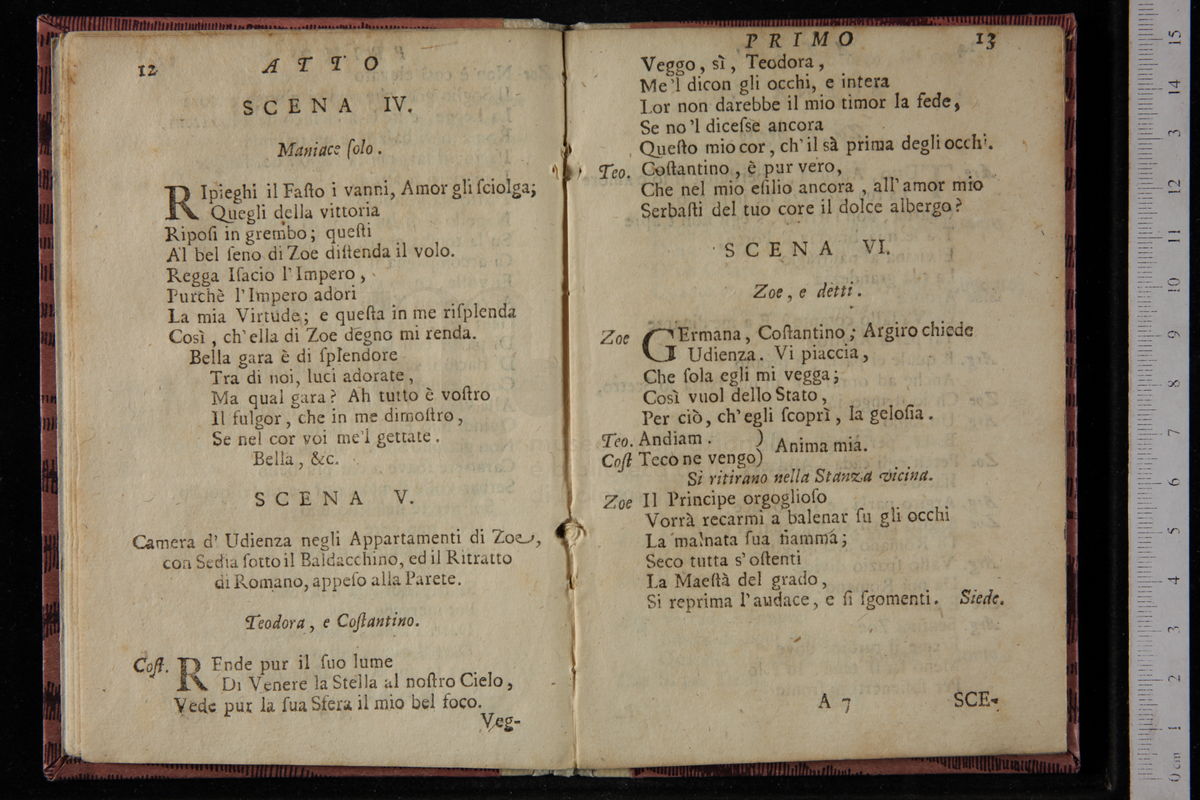 12 ATTO
SCENA IV.
Maniace ſolo.
RIpieghi il Faſto i vanni, Amor gli ſciolga;
Quegli della vittoria
Ripoſi in grembo; queſti
Al bel ſeno di Zoe diſtenda il volo.
Regga Iſacio l'Impero,
Purchè l'Impero adori
La mia Virtude; e queſta in me riſplenda
Così, ch'ella di Zoe degno mi renda.
Bella gara è di ſplendore
Tra di noi, luci adorate,
Ma qual gara? Ah tutto è voſtro
Il fulgor, che in me dimoſtro,
Se nel cor voi me'l gettate.
Bella, &c.
SCENA V.
Camera d' Udienza negli Appartamenti di Zoe,
con Sedia ſotto il Baldacchino, ed il Ritratto
di Romano, appeſo alla Parete.
Teodora, e Coſtantino.
Coſt. REnde pur il ſuo lume
Di Venere la Stella al noſtro Cielo,
Vede pur la ſua Sfera il mio bel foco.
Veg-
PRIMO 13
Veggo, sì, Teodora,
Me'l dicon gli occhi, e intera
Lor non darebbe il mio timor la fede,
Se no'l diceſse ancora
Queſto mio cor, ch'il sà prima degli occhi.
Teo. Coſtantino, è pur vero,
Che nel mio eſilio ancora, all'amor mio
Serbaſti del tuo core il dolce albergo?
SCENA VI.
Zoe, e detti.
Zoe GErmana, Coſtantino; Argiro chiede
Udienza. Vi piaccia,
Che ſola egli mi vegga;
Così vuol dello Stato,
Per ciò, ch'egli ſcoprì, la geloſia.
Teo. Andiam. ) Anima mia.
Coſt Teco ne vengo)
Si ritirano nella Stanza vicina.
Zoe Il Principe orgoglioſo
Vorrà recarmi a balenar ſu gli occhi
La malnata ſua fiamma;
Seco tutta s'oſtenti
La Maeſtà del grado,
Si reprima l'audace, e ſi ſgomenti. Siede.
A 7 SCE-
0 cm 1 2 3 4 5 6 7 8 9 10 11 12 13 14 15